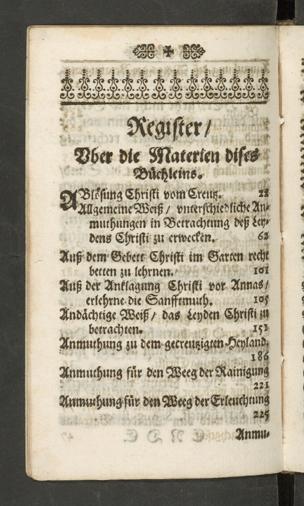 Register/
Vber die Materien dises
Büchleins.
ABlösung Christi vom Creutz. 28
Allgemeine Weiß / vnterschiedliche An-
muthungen in Betrachtung deß Ley-
dens Christi zu erwecken. 62
Auß dem Gebett Christi im Garten recht
betten zu lehrnen. 101
Auß der Anklagung Christi vor Annas/
erlehrne die Sanfftmuth. 105
Andächtige Weiß / das Leyden Christi zu
betrachten. 152
Anmuthung zu dem gecreutzigten Heyland.
186
Anmuthung für den Weeg der Rainigung
221
Anmuthung für den Weeg der Erleuchtung
225
Anmu-